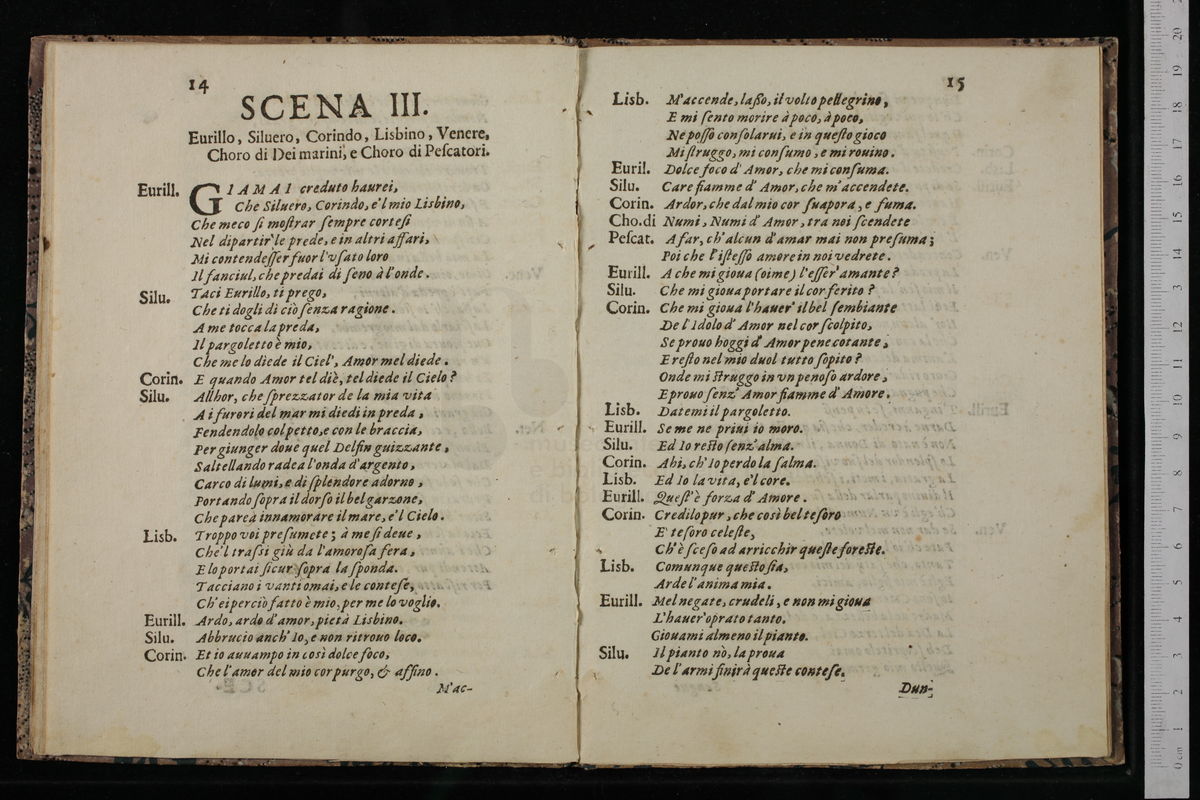 14
SCENA III.
Eurillo, Siluero, Corindo, Lisbino, Venere,
Choro di Dei marini, e Choro di Peſcatori.
Eurill. GIAMAI creduto haurei,
Che Siluero, Corindo, e'l mio Lisbino,
Che meco ſi moſtrar ſempre corteſi
Nel dipartir le prede, e in altri affari,
Mi contendeſſer fuor l'vſato loro
Il fanciul, che predai di ſeno à l'onde.
Silu. Taci Eurillo, ti prego,
Che ti dogli di ciò ſenza ragione.
A me tocca la preda,
Il pargoletto è mio,
Che me lo diede il Ciel', Amor mel diede.
Corin. E quando Amor tel diè, tel diede il Cielo?
Silu. Allhor, che ſprezzator de la mia vita
A i furori del mar mi diedi in preda,
Fendendolo col petto, e con le braccia,
Per giunger doue quel Delfin guizzante,
Saltellando radea l'onda d'argento,
Carco di lumi, e di ſplendore adorno,
Portando ſopra il dorſo il bel garzone,
Che parea innamorare il mare, e'l Cielo.
Lisb. Troppo voi preſumete; à me ſi deue,
Che'l traſsi giù da l'amoroſa fera,
E lo portai ſicur ſopra la ſponda.
Tacciano i vanti omai, e le conteſe,
Ch'ei perciò fatto è mio, per me lo voglio.
Eurill. Ardo, ardo d'amor, pietà Lisbino.
Silu. Abbrucio anch'Io, e non ritrouo loco.
Corin. Et io auuampo in così dolce foco,
Che l'amor del mio cor purgo, & affino.
M'ac-
15
Lisb. M'accende, laſſo, il volto pellegrino,
E mi ſento morire à poco, à poco,
Ne poſſo conſolarui, e in queſto gioco
Mi ſtruggo, mi conſumo, e mi rouino.
Euril. Dolce foco d'Amor, che mi conſuma.
Silu. Care fiamme d'Amor, che m'accendete.
Corin. Ardor, che dal mio cor ſuapora, e fuma.
Cho. di Numi, Numi d'Amor, tra noi ſcendete
Peſcat. A far, ch'alcun d'amar mai non preſuma;
Poi che l'iſteſſo amore in noi vedrete.
Eurill. A che mi gioua (oime) l'eſſer'amante?
Silu. Che mi gioua portare il cor ferito?
Corin. Che mi gioua l'hauer' il bel ſembiante
De l'Idolo d'Amor nel cor ſcolpito,
Se prouo hoggi d'Amor pene cotante,
E reſto nel mio duol tutto ſopito?
Onde mi ſtruggo in vn penoſo ardore,
E prouo ſenz'Amor fiamme d'Amore.
Lisb. Datemi il pargoletto.
Eurill. Se me ne priui io moro.
Silu. Ed Io reſto ſenz'alma.
Corin. Ahi, ch'Io perdo la ſalma.
Lisb. Ed Io la vita, e'l core.
Eurill. Queſt'è forza d'Amore.
Corin. Credilo pur, che così bel teſoro
E' teſoro celeſte,
Ch'è ſceſo ad arricchir queſte foreſte.
Lisb. Comunque queſto ſia,
Arde l'anima mia.
Eurill. Mel negate, crudeli, e non mi gioua
L'hauer'oprato tanto.
Giouami almeno il pianto.
Silu. Il pianto nò, la proua
De l'armi finirà queſte conteſe.
Dun-